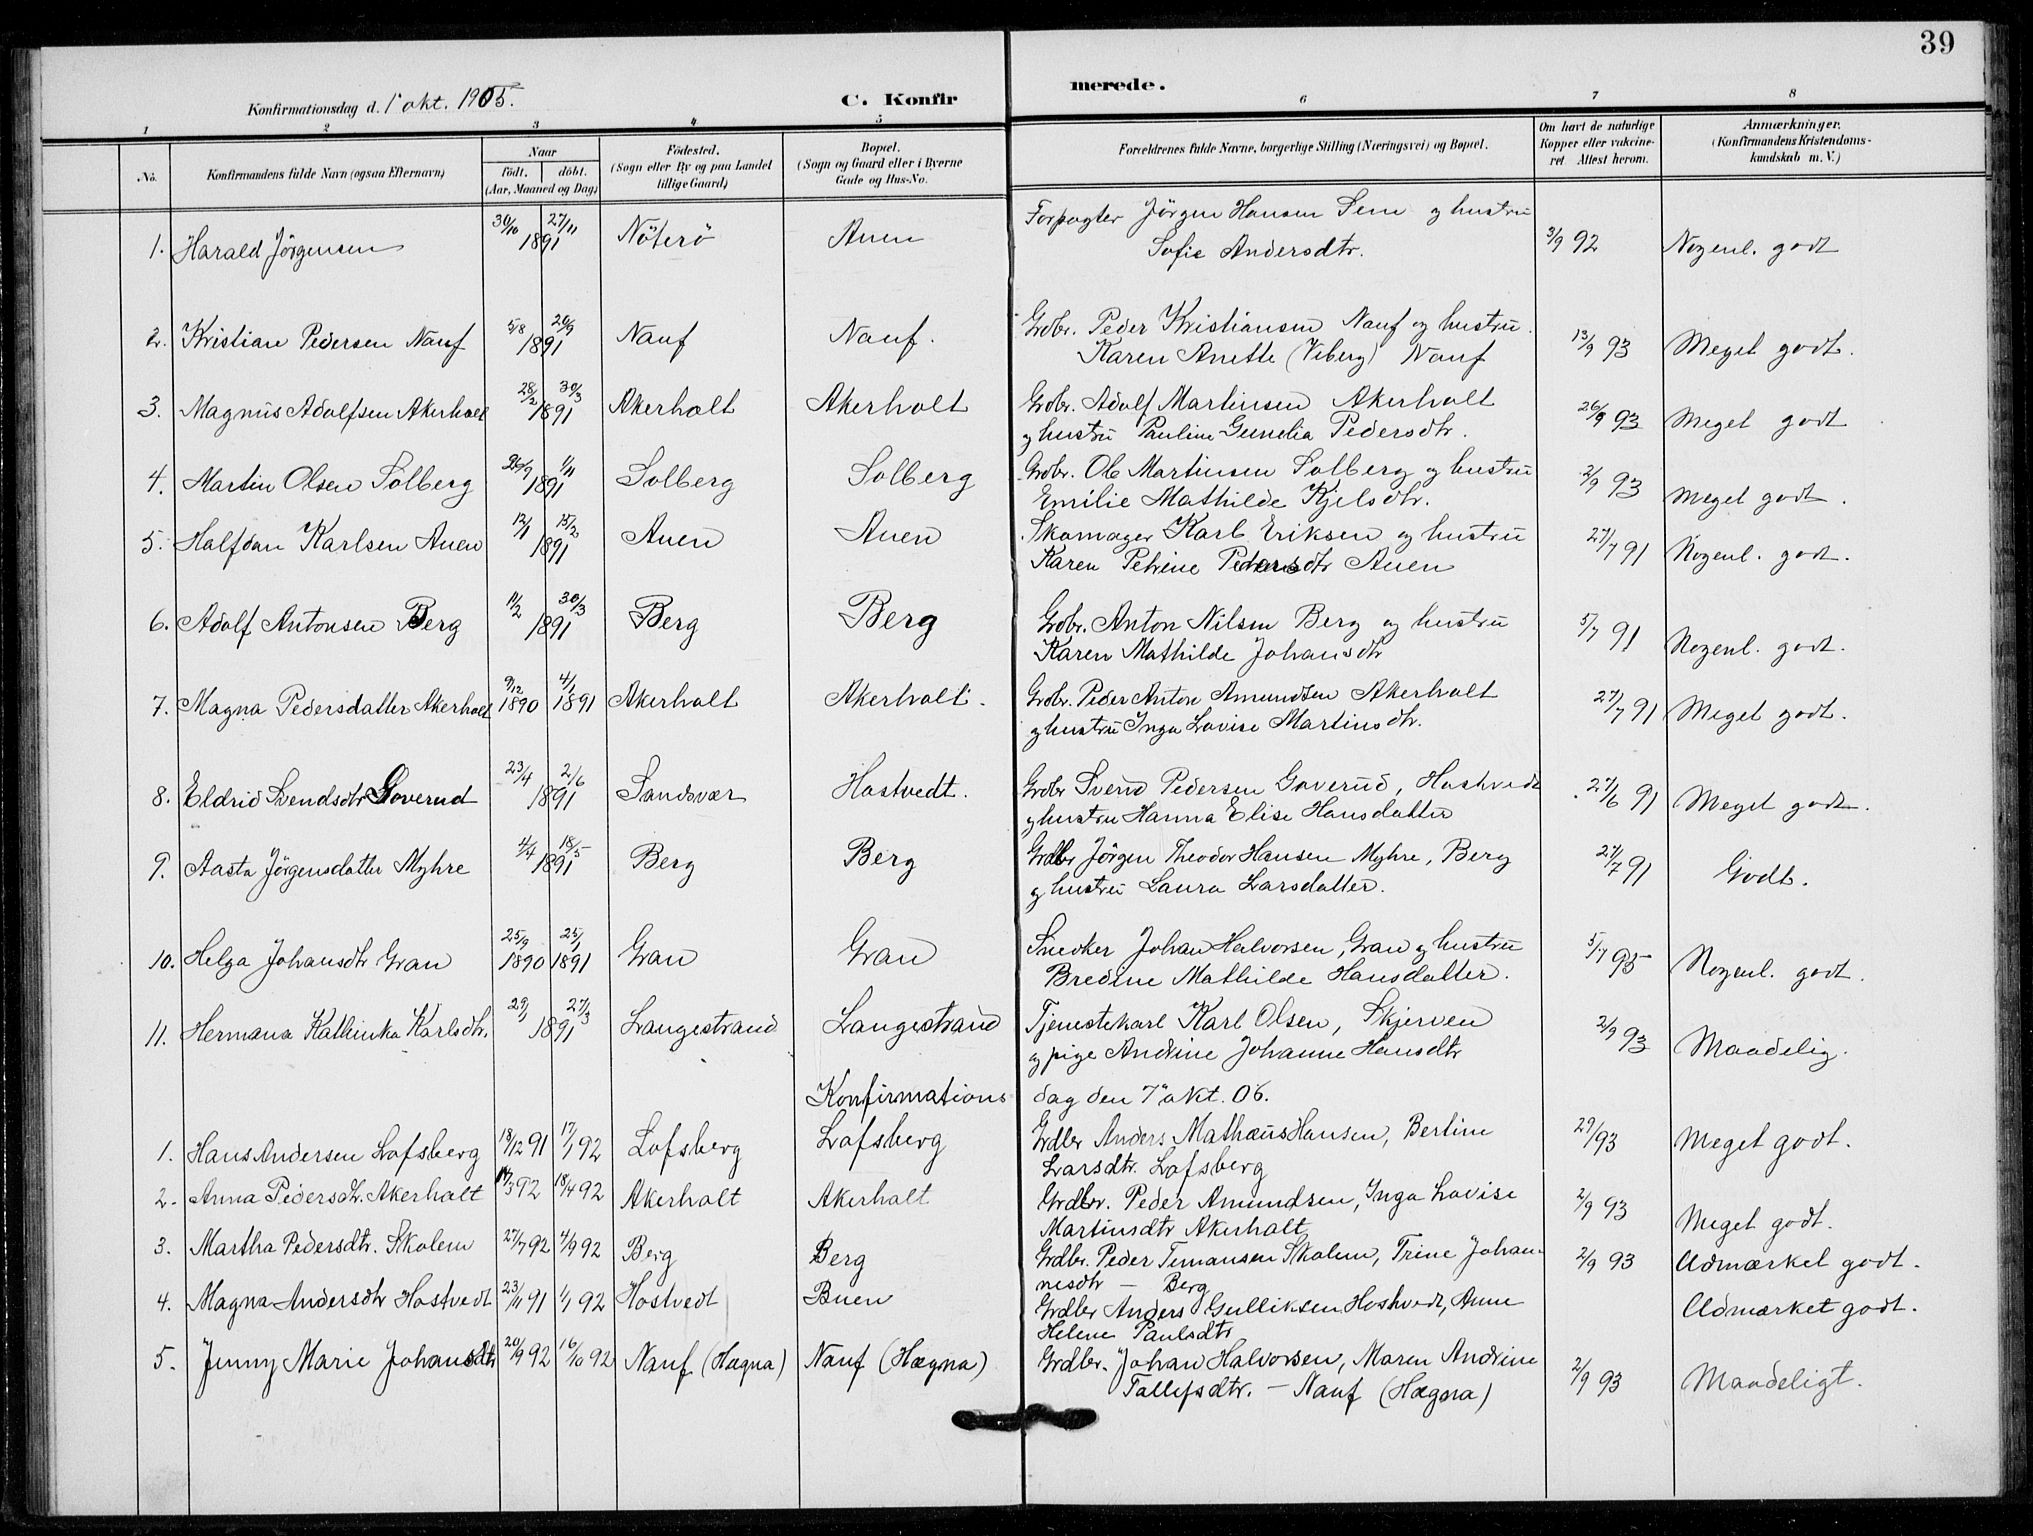 39
Konfirmationsdag d. 1' okt. 1905.
C. Konfir merede.
1 2 3 4 5 6 7 8
No. Konfirmandens fulde Navn (ogsaa Efternavn)
Naar født. døbt. (Aar, Maaned og Dag)
Fødested. (Sogn eller By og paa Landet tillige Gaard)
Bopæl. (Sogn og Gaard eller i Byerne Gade og Hus-No.
Forældrenes fulde Navne, borgerlige Stilling (Næringsvei) og Bopæl.
Om havt de naturlige Kopper eller vakcineret Attest herom.
Anmærkninger. (Konfirmandens Kristendomskundskab m. V.)
1. Harald Jörgensen 30/10 27/11 1891 Nöterö Auen Forpagter Jörgen Hansen Sem og hustru
Sofie Andersdtr. 3/9 92 Nogenl. godt
2. Kristian Pedersen Nauf 5/8 20/9 1891 Nauf Nauf. Grdbr. Peder Kristiansen Nauf og hustru
Karen Anette (Viberg) Nauf 13/9 93 Meget godt.
3. Magnus Adolfsen Akerholt 28/2 30/3 1891 Akerholt Akerholt Grdbr. Adolf Martinsen Akerholt
og hustru Pauline Gunelia Pedersdtr. 26/9 93 Meget godt
4. Martin Olsen Solberg 26/9 1/11 1891 Solberg Solberg Grdbr. Ole Martinsen Solberg og hustru
Emilie Mathilde Kjelsdtr. 2/9 93 Meget godt.
5. Halfdan Karlsen Auen 12/1 15/2 1891 Auen Auen Skomager Karl Eriksen og hustru
Karen Petrine Pedersdtr Auen 27/7 91 Nogenl. godt.
6. Adolf Antonsen Berg 11/2 30/3 1891 Berg Berg Grdbr. Anton Nilsen Berg og hustru
Karen Mathilde Johansdtr 5/7 91 Nogenl. godt.
7. Magna Pedersdatter Akerholt 9/12 1890 4/1 1891 Akerholt Akerholt. Grdbr. Peder Anton Amundsen Akerholt
og hustru Inga Lovise Martinsdtr. 27/7 91 Meget godt.
8. Eldrid Svendsdtr Goverud 23/4 2/6 1891 Sandsvær Hostvedt. Grdbr Svend Pedersen Goverud, Hostvedt
og hustru Hanna Elise Hansdatter 27/6 91 Meget godt.
9. Aasta Jörgensdatter Myhre 4/4 18/5 1891 Berg Berg Grdbr Jörgen Theodor Hansen Myhre, Berg
og hustru Laura Larsdatter. 27/7 91 Godt.
10. Helga Johansdtr Gran 25/9 1890 25/1 1891 Gran Gran Snedker Johan Halvorsen, Gran og hustru
Bredine Mathilde Hansdatter. 5/7 95 Nogenl. godt.
11. Hermana Kathinka Karlsdtr. 29/1 27/3 1891 Langestrand Langestrand Tjenestekarl Karl Olsen, Skjerven
og pige Andrine Johanne Hansdtr 2/9 93 Maadelig.
Konfirmations dag den 7' okt. 06.
1. Hans Andersen Lofsberg 18/12 91 17/1 92 Lofsberg Lofsberg Grdbr Anders Mathæus Hansen, Bertine
Larsdtr. Lofsberg 29/93 Meget godt.
2. Anna Pedersdtr. Akerholt 14/3 92 18/4 92 Akerholt Akerholt Grdbr. Peder Amundsen, Inga Lovise
Martinsdtr Akerholt 2/9 93 Meget godt.
3. Martha Pedersdtr. Skolem 27/7 92 4/9 92 Berg Berg Grdbr. Peder Temansen Skolem, Trine Johan-
nesdtr — Berg 2/9 93 Udmærket godt.
4. Magna Andersdtr Hostvedt 23/11 91 1/1 92 Hostvedt Buen Grdbr Anders Gulliksen Hostvedt, Anne
Helene Paulsdtr Udmærket godt.
5. Jenny Marie Johansdtr 20/9 92 16/10 92 Nauf (Hægna) Nauf (Hægna) Grdbr. Johan Halvorsen, Maren Andrine
Tollefsdtr. — Nauf (Hægna) 2/9 93 Maadeligt.